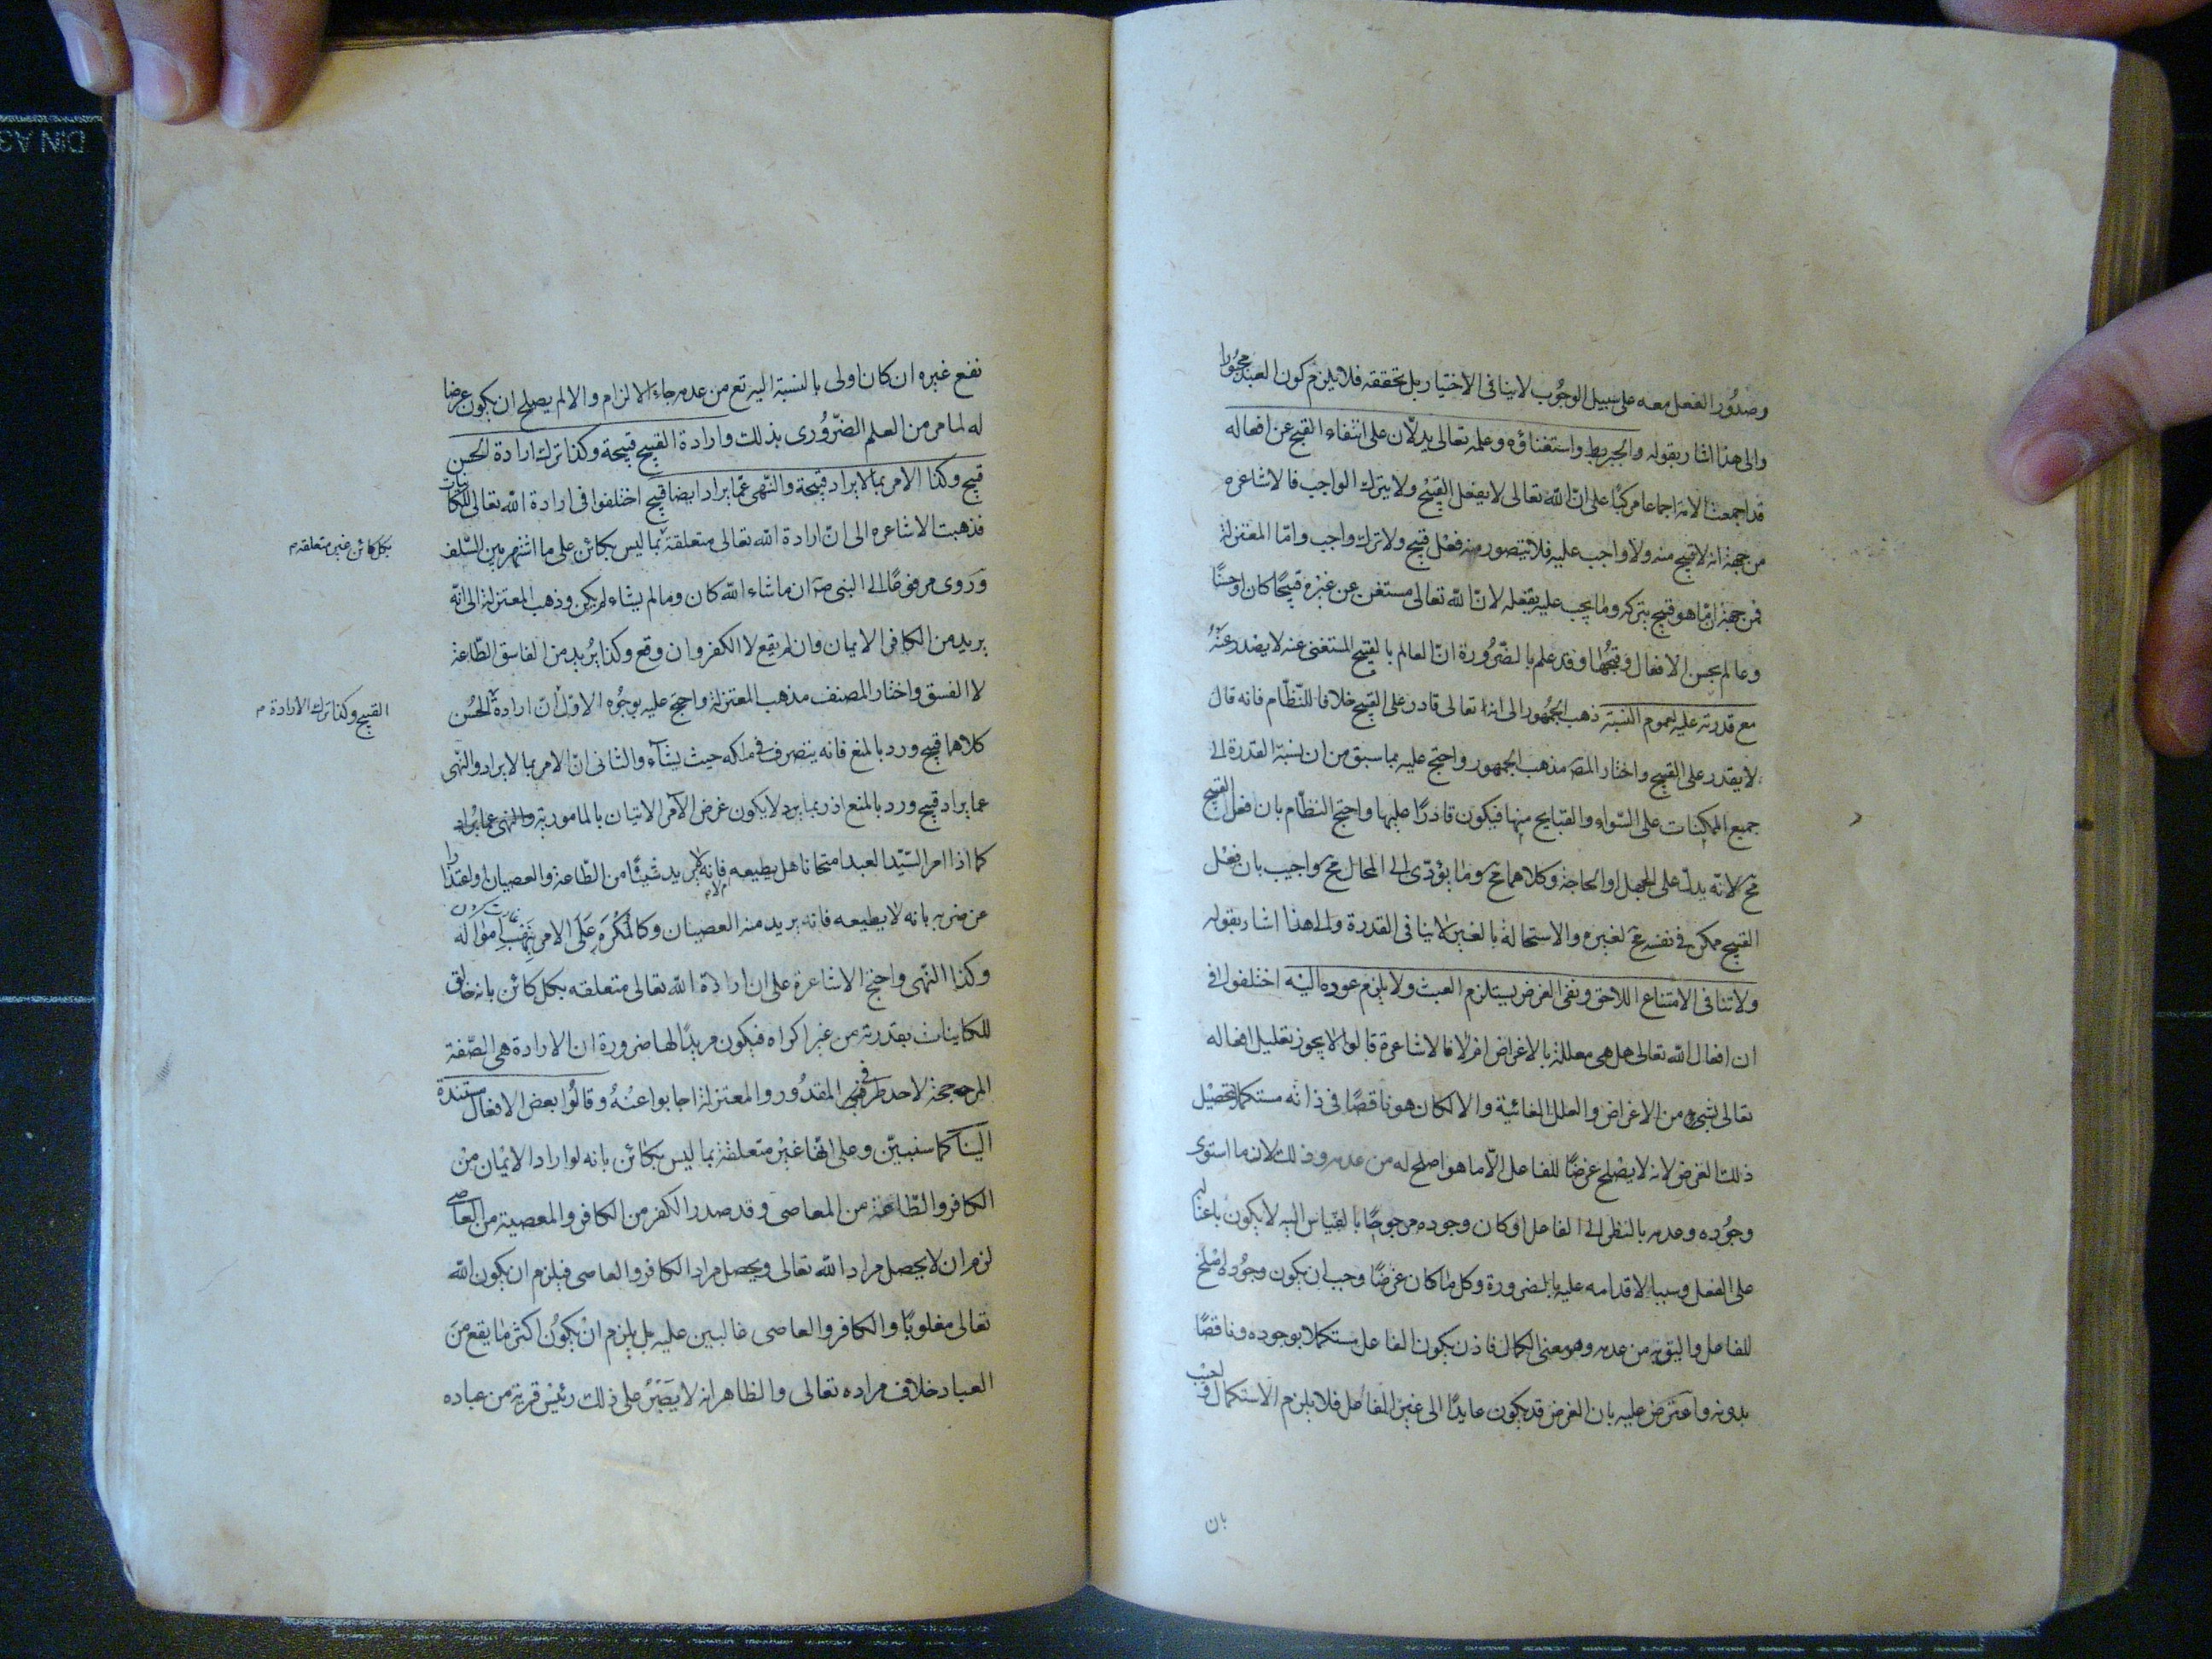 وصدُور الفعل معه على سبيل الوجُوب لا ينافى الاختيار بل تحققه فلا يلزم كون العبد مجبُورا
والى هذا اشار بقوله واستغناؤه وعلمه تعالى يدلّان على انتفاء القبح عن افعاله
قد اجمعت الامة اجماعا مركبًا على انّ الله تعالى لا يفعل القبيح ولا يترك الواجب فالاشاعره
من جهة انه لا قبيح منه ولا واجب عليه فلا يتصور منه فعْل قبيح ولا ترك واجب وامّا المعتزلة
فمن جهة انّ ما هو قبيح يتركه وما يجب عليه يفعله لانّ الله تعالى مستغن عن غيْره قبيحًا كان او حسنًا
وعالم بحسن الافعال وقبحُها وقد علم بالضّرُورة انّ العالم بالقبيح المستغنى عنه لا يصْدر عنْهُ
مع قدرته عليه لعموم النسبة ذهب الجُمهُور الى انه تعالى قادر على القبيح خلافا للنّظّام فانه قال
لا يقدر على القبيح واختار المصـ مذهب الجُمهور واحتج عليه بما سبق من ان نسبة القدرة الى
جميع الممكنات على السّواء والقبايح منها فيكون قادرًا عليها واحتج النظّام بان فعل القبيح
مح لانّه يدل على الجهل او الحاجة وكلاهما مح وما يؤدّى الى المحال مح واجيب بان فعْل
القبيح ممكن فى نفسه مح لغيره والاستحالة بالغيْر لا ينافى القدرة والى هذا اشار بقوله
ولا تنافى الامتناع اللاحق ونفى الغرض يستلزم العبث ولا يلزم عوده اليْه اختلفوا فى
ان افعال الله تعالى هل هى معللة بالاغراض ام لا فالاشاعرة قالوا لا يجوز تعليل افعاله
تعالى بشىء من الاغراض والعلل الغائيّة والا لكان هو ناقصًا فى ذاته مستكملا بتحصيْل
ذلك الغرض لانه لا يصْلح غرضًا للفاعل الّا ما هو اصلح له من عدمه وذلك لان ما استوى
وجُوده وعدمه بالنظر الى الفاعل او كان وجوده مرجوحًا بالقيَاس اليه لا يكون باعثا له
على الفعل وسببا لاقدامه عليه بالضرورة وكل ما كان غرضًا وجب ان يكون وجُوده اصْلح
للفاعل واليق به من عدمه وهو معنى الكمال فاذن يكون الفاعل مستكملا بوجوده وناقصًا
بدونه واعترض عليه بان الغرض قد يكون عايدًا الى غيْر الفاعل فلا يلزم الاستكمال واجيب
بان
نفع غيره ان كان اولى بالنسبة اليه تع من عدمه جاء الالزام والا لم يصلح ان يكون غرضا
له لما مر من العلم الضّرُورى بذلك وارادة القبيح قبيحة وكذا ترك ارادة الحسن
قبيح وكذا الامر بما لا يراد قبيحة والنّهى عمّا يراد ايضا قبيح اختلفوا فى ارادة الله تعالى للكاينات
فذهبت الاشاعره الى انّ ارادة الله تعالى متعلقة بما ليس بكائن على ما اشتهر بين السّلف
بكل كائن غير متعلقة م
وَروى مرفوعًا الى النبى صـ ان ما شاء الله كان وما لم يشاء لم يكن وذهب المعتزلة الى انّه
يريد من الكافر الايمان وان لم يقع لا الكفر وان وقع وكذا يُريد من الفاسق الطّاعة
لا الفسق واختار المصنف مذهب المعتزلة واحتج عليه بوجُوه الاوّل انّ ارادة الحُسن
القبيح وكذا ترك الارادة م
كلاهما قبيح ورد بالمنع فانه يتصرف فى ملكه حيث يشآء والثانى انّ الامر بما لا يراد والنّهى
عما يراد قبيح ورد بالمنع اذ ربما يرد لا يكون غرض الآمر الاتيان بالمامور به والنهى عما يُراد
كما اذا امر السّيّد العبد امتحانا هل يطيعه ام لا فانه لا يريد شيْئًا من الطّاعة والعصيان او اعتذارا
عن ضربه بانه لا يطيعه فانه يريد منه العصيان وكالمُكْرَهِ عَلَى الامر بنَهْبِ امواله
وكذا النّهى واحتج الاشاعرة على ان ارادة الله تعالى متعلقه بكل كائن بانه خالق
للكاينات بقدرته من غير اكراه فيكون مريدًا لها ضرورة ان الارادة هى الصّفة
المرجحة لاحد طرفى المقدُور والمعتزلة اجابوا عنْهُ وقالُوا بعض الافعال مستندة
اليْنا كما سنبيّن وعلى انّها غيْر متعلقة بما ليس بكائن بانه لو اراد الايْمان منْ
الكافر والطّاعة من المعاصى وقد صدر الكفر من الكافر والمعصية من العاصى
لزم ان لا يحصل مراد الله تعالى ويحصل مراد الكافر والعاصى فيلزم ان يكون الله
تعالى مغلوبًا والكافر والعاصى غالبين عليه بل يلزم انْ يكُونُ اكثر ما يقع منَ
العباد خلاف مراده تعالى والظاهر انه لا يصْبَرُ على ذلك رئيس قرية من عباده